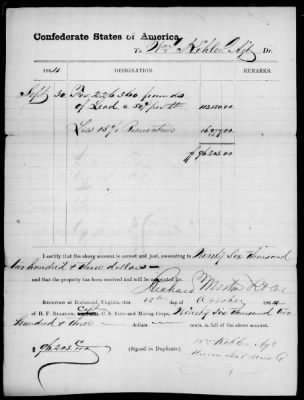 Confederate States of America,
To Wm Kohler Agt Dr.
1864 DESIGNATION. REMARKS.
Sept 30 For 226360 pounds
of Lead @ 50¢ per lb 113180.00
Less 15% 16977.00
$96203.00
I certify that the above account is correct and just, amounting to Ninety Six thousand
two hundred & three dollars
and that the property has been received and will be accounted for.
Richard Morton
RECEIVED at Richmond, Virginia, this 15th day of October 1864
of R. F. Capt. C. S. Nitre and Mining Corps, Ninety Six thousand two
hundred & three dollars cents, in full of the above account.
$96203.00 (Signed in Duplicate) Wm Kohler Agt
Union Lead Mine Co